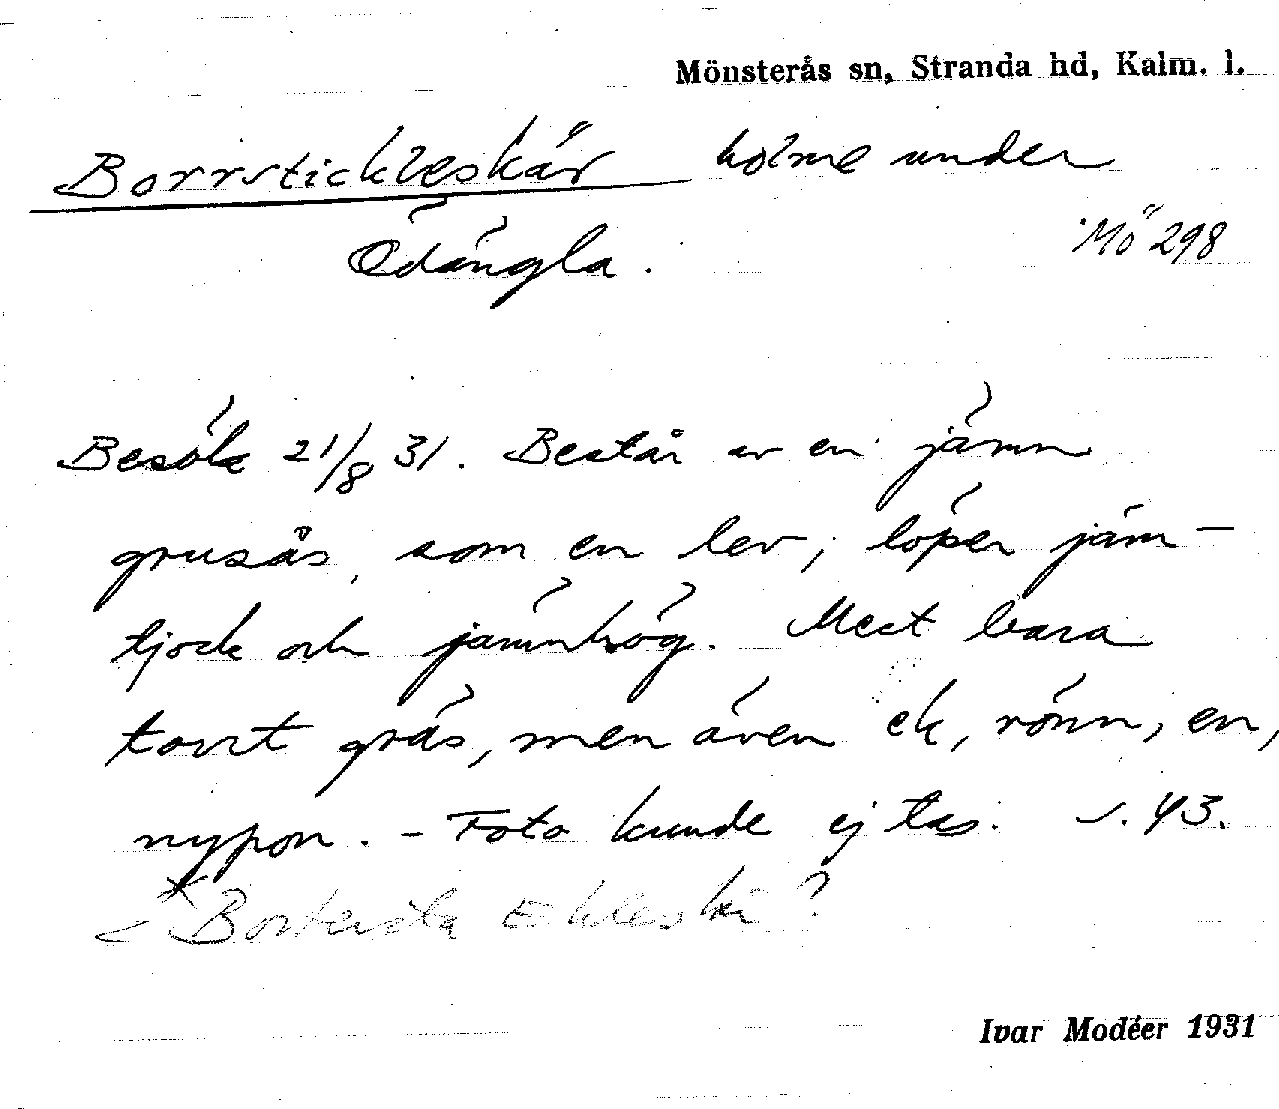 Mönsterås sn, Stranda hd, Kalm. l.
Borrstickleskär holme under
Ödängla. Mö 298
Besök 21/8 31. Består av en jämn
grusås, som en lev, löper jäm-
tjock och jämnhög. Mest bara
torrt gräs, men även ek, rönn, en,
nypon. - Foto kunde ej tas. s. 43.
< *Borttersta ?
Ivar Modéer 1931